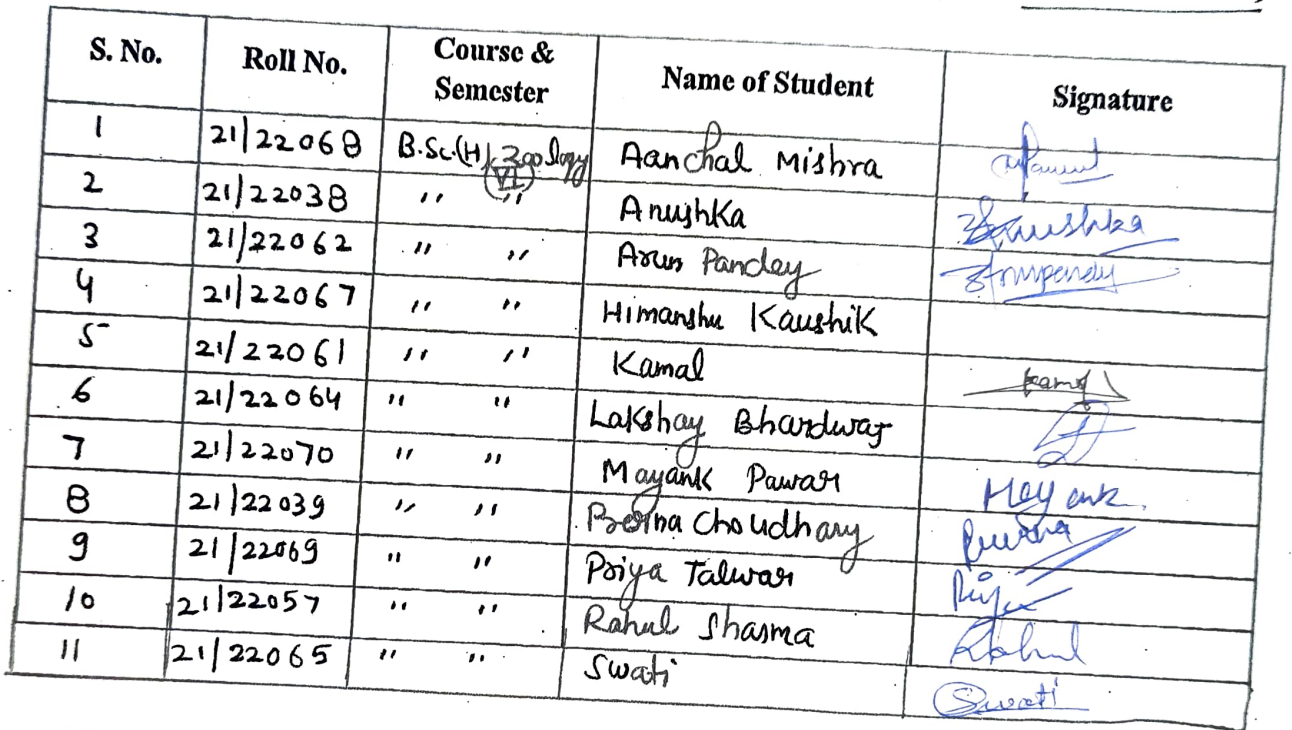 S. No. Roll No. Course & Semester Name of Student Signature
1 21/22068 B.Sc.(H) Zoology VI Aanchal Mishra
2 21/22038 " " Anushka Anushka
3 21/22062 " " Arun Pandey Arunpandey
4 21/22067 " " Himanshu Kaushik
5 21/22061 " " Kamal Kamal
6 21/22064 " " Lakshay Bhardwaj
7 21/22070 " " Mayank Pawar Mayank
8 21/22039 " " Prerna Choudhary Prerna
9 21/22069 " " Priya Talwar Priya
10 21/22057 " " Rahul Sharma Rahul
11 21/22065 " " Swati Swati